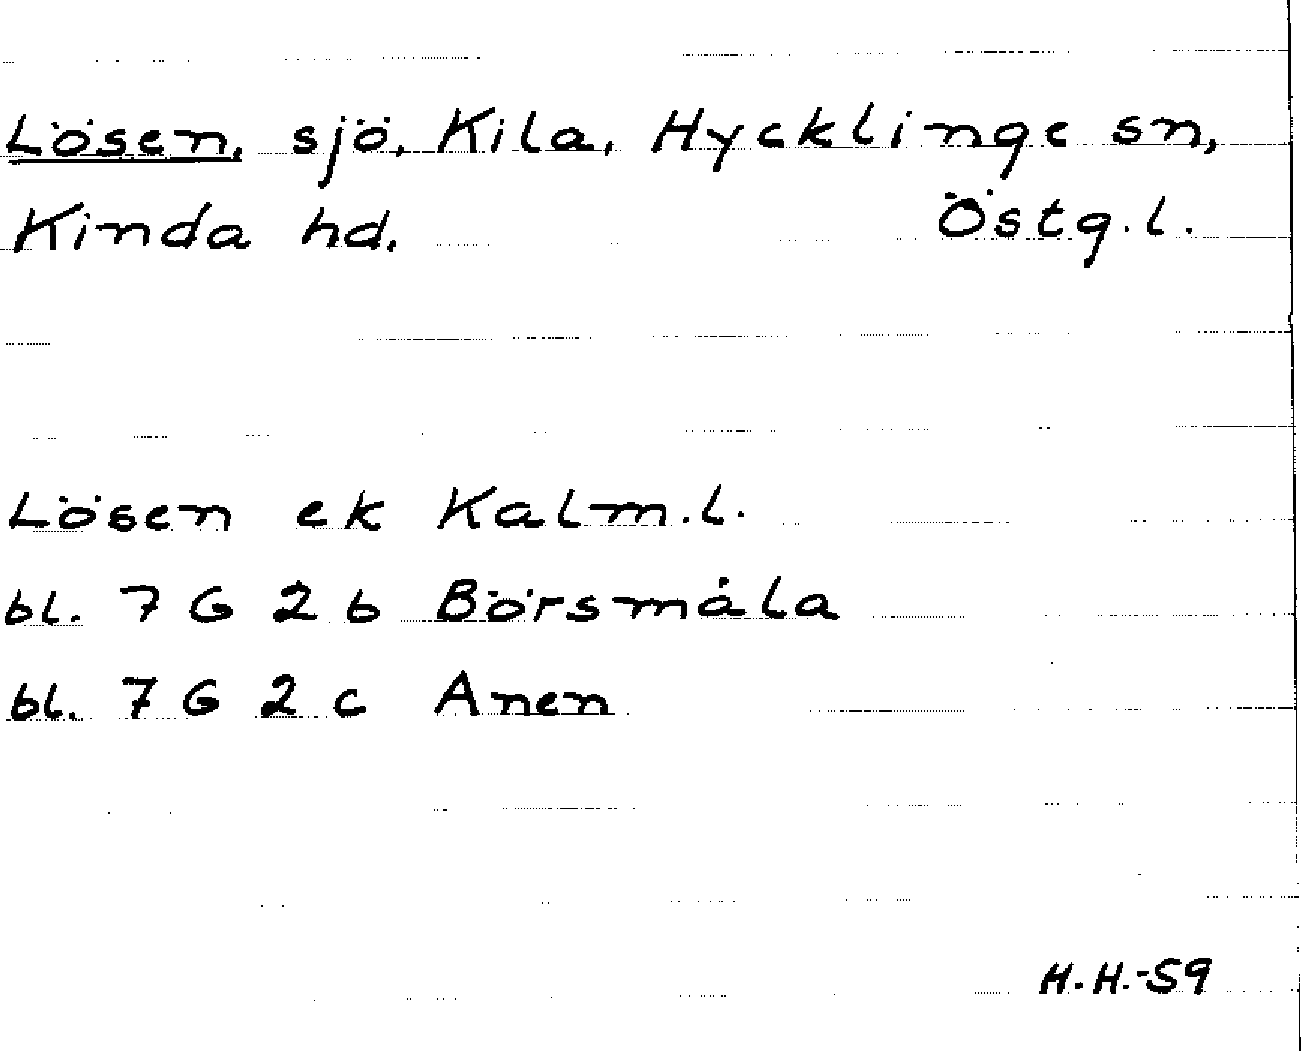 Lösen, sjö, Kila, Hycklinge sn,
Kinda hd. Östg.l.
Lösen ek Kalm.l.
bl. 7 G 2 b Börsmåla
bl. 7 G 2 c Anen
H.H.-59